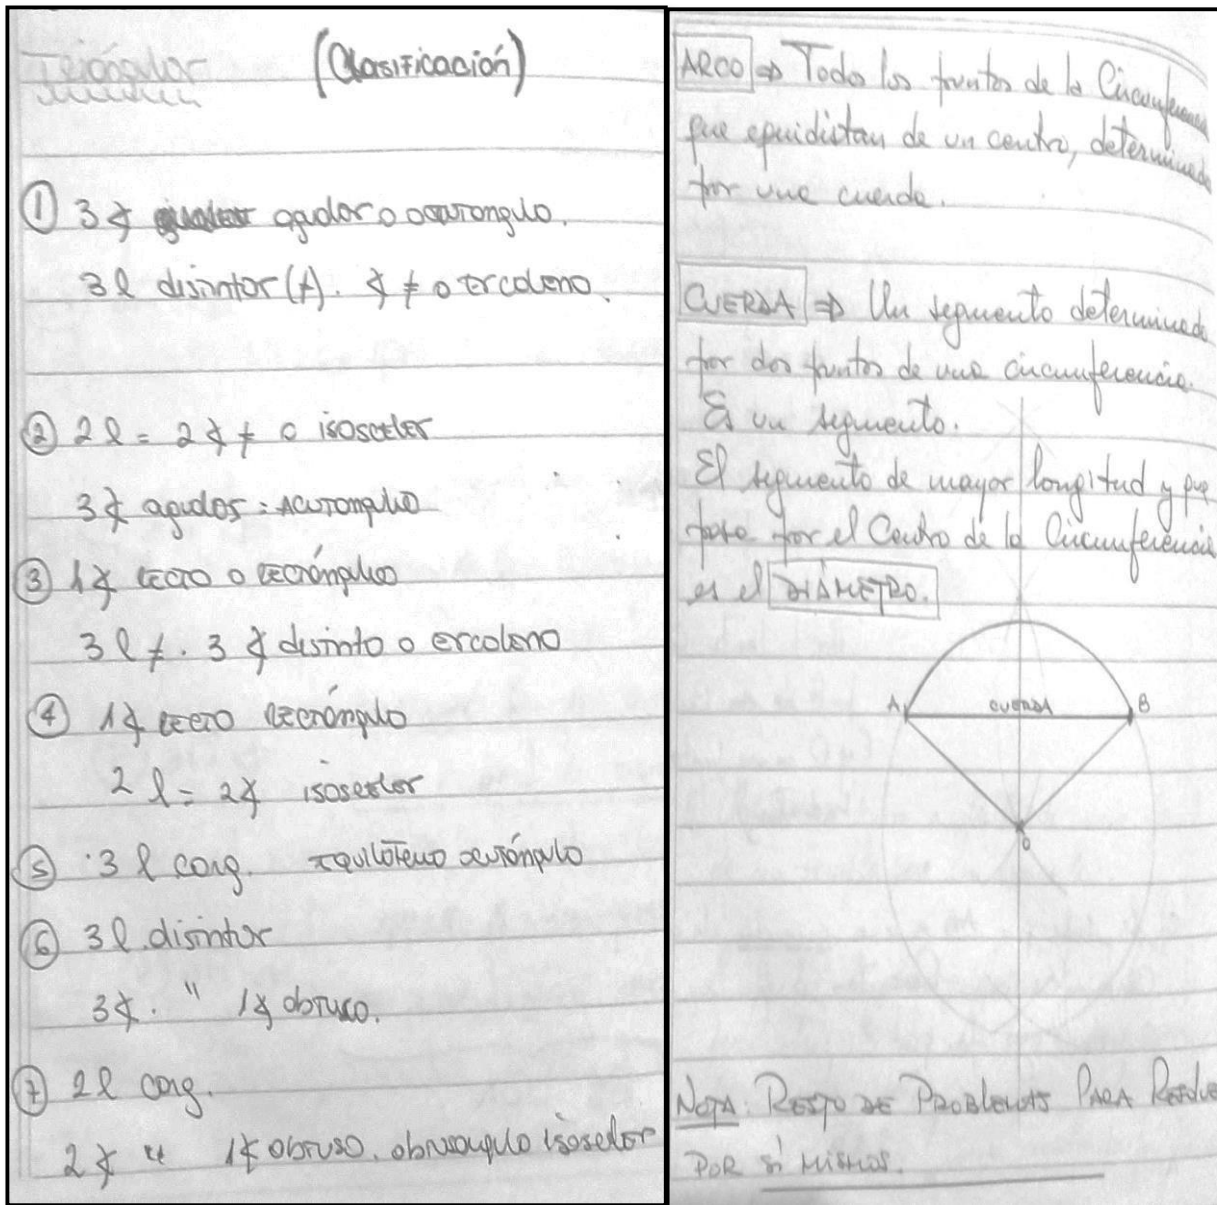 Triángulos (Clasificación)
① 3∡ agudos o acutangulo.
3l disintos (≠). ∡ ≠ o escaleno.
② 2l = 2∡ ≠ o isosceles
3∡ agudos = Acutangulo
③ 1∡ recto o rectángulo
3l ≠. 3∡ disinto o escaleno
④ 1∡ recto rectángulo
2l = 2∡ isosceles
⑤ 3l cong. equilatero acutángulo
⑥ 3l disintos
3∡. " 1∡ obtuso.
⑦ 2l cong.
2∡ " 1∡ obtuso. obtusangulo isosceles
ARCO ⇒ Todo los puntos de la Circunferencia
que equidistan de un centro, determinado
por una cuerda.
CUERDA ⇒ Un segmento determinado
por dos puntos de una circunferencia.
Es un segmento.
El segmento de mayor longitud y que
pasa por el Centro de la Circunferencia
es el DIÁMETRO.
A CUERDA B
O
NOTA: RESTO DE PROBLEMAS PARA
POR SÍ MISMOS.